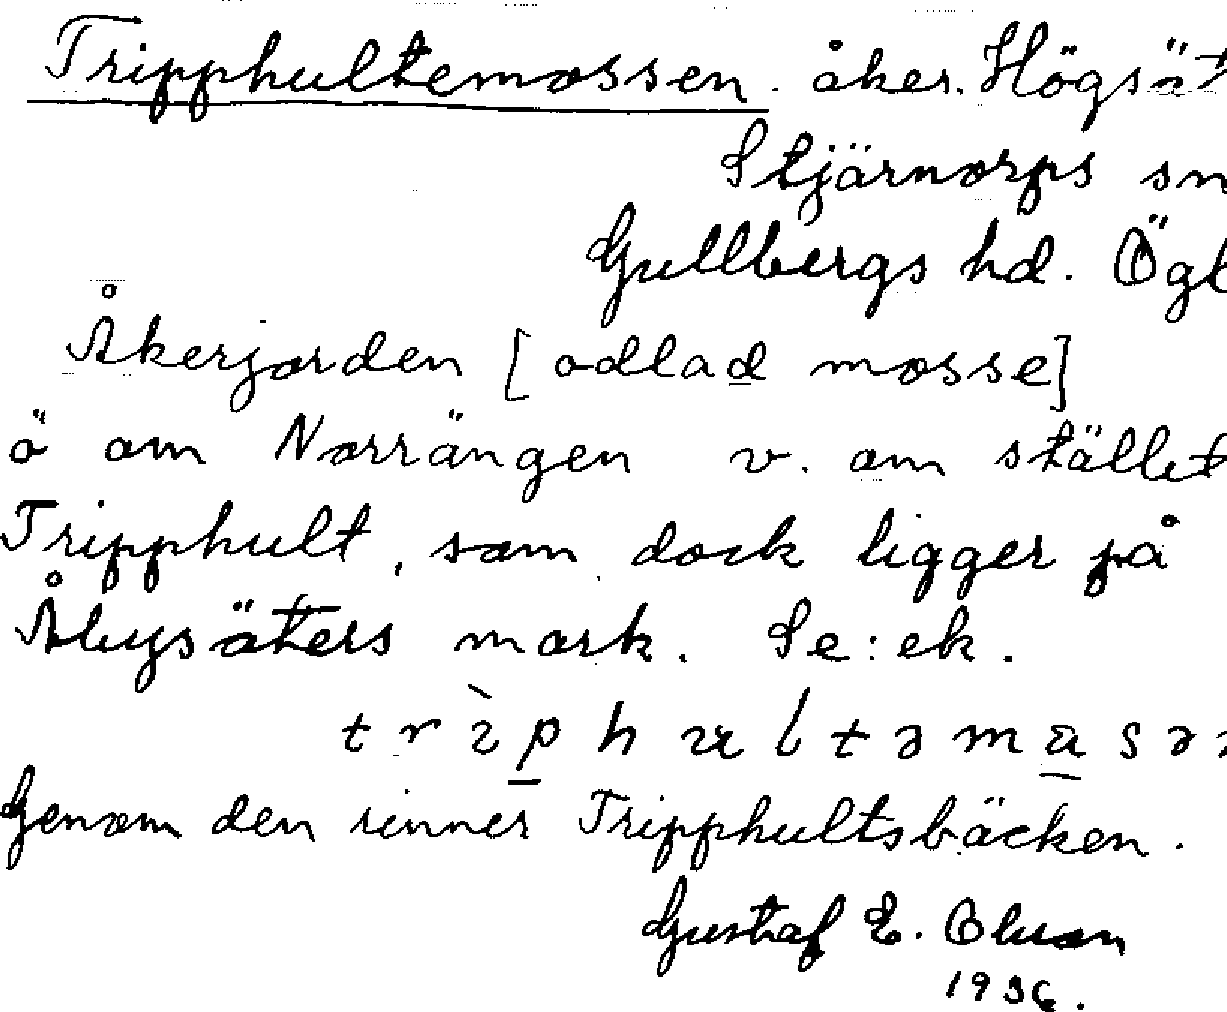 Tripphultemossen. åker. Högsät
Stjärnorps sn
Gullbergs hd. Ögl
Åkerjorden [odlad mosse]
ö om Norrängen v. om stället
Tripphult, som dock ligger på
Åbysäters mark. Se: ek.
trìphultəmasə
Genom den rinner Tripphultsbäcken.
Gustaf E. Olson
1936.